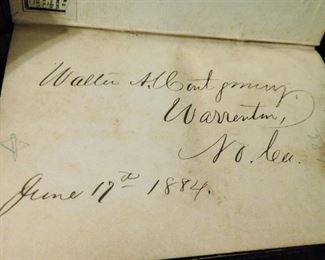 Walter A. Montgomery.
Warrenton,
No. Ca.
June 17th 1884.